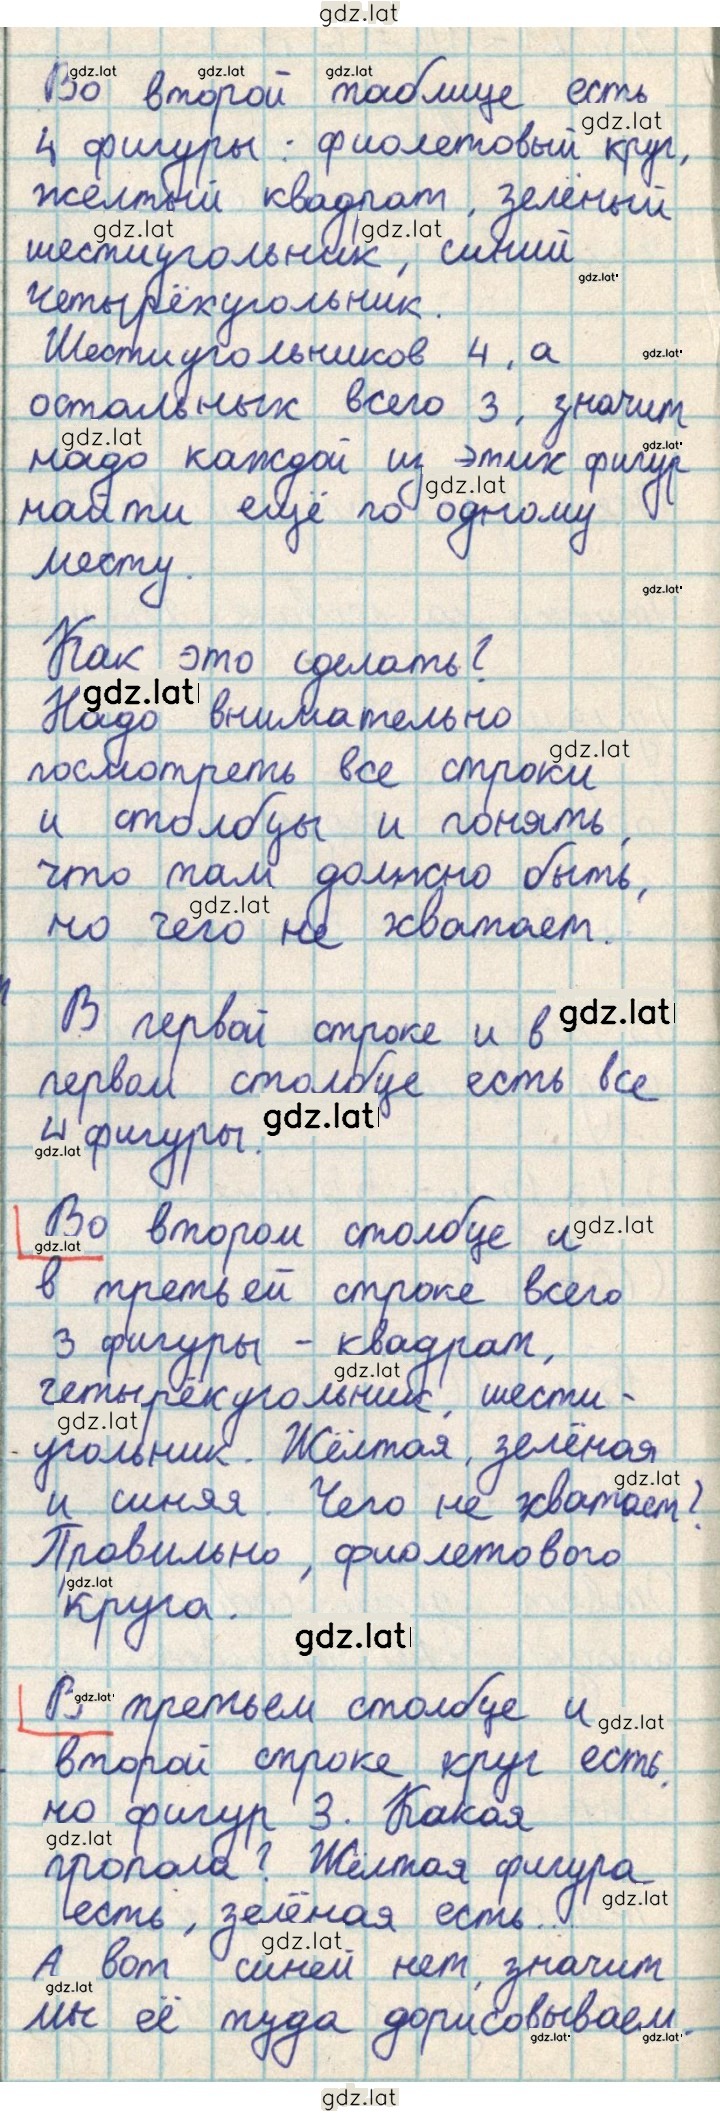 gdz.lat
Во второй таблице есть
4 фигуры: фиолетовый круг,
жёлтый квадрат, зелёный
шестиугольник, синий
четырёхугольник.
Шестиугольников 4, а
остальных всего 3, значит
надо каждой из этих фигур
найти ещё по одному
месту.
Как это сделать?
Надо внимательно
посмотреть все строки
и столбцы и понять,
что там должно быть,
но чего не хватает.
В первой строке и в
первом столбце есть все
4 фигуры.
Во втором столбце и
в третьей строке всего
3 фигуры - квадрат,
четырёхугольник, шести-
угольник. Жёлтая, зелёная
и синяя. Чего не хватает?
Правильно, фиолетового
круга.
В третьем столбце и
второй строке круг есть,
но фигур 3. Какая
пропала? Жёлтая фигура
есть, зелёная есть...
А вот синей нет, значит
мы её туда дорисовываем.
gdz.lat